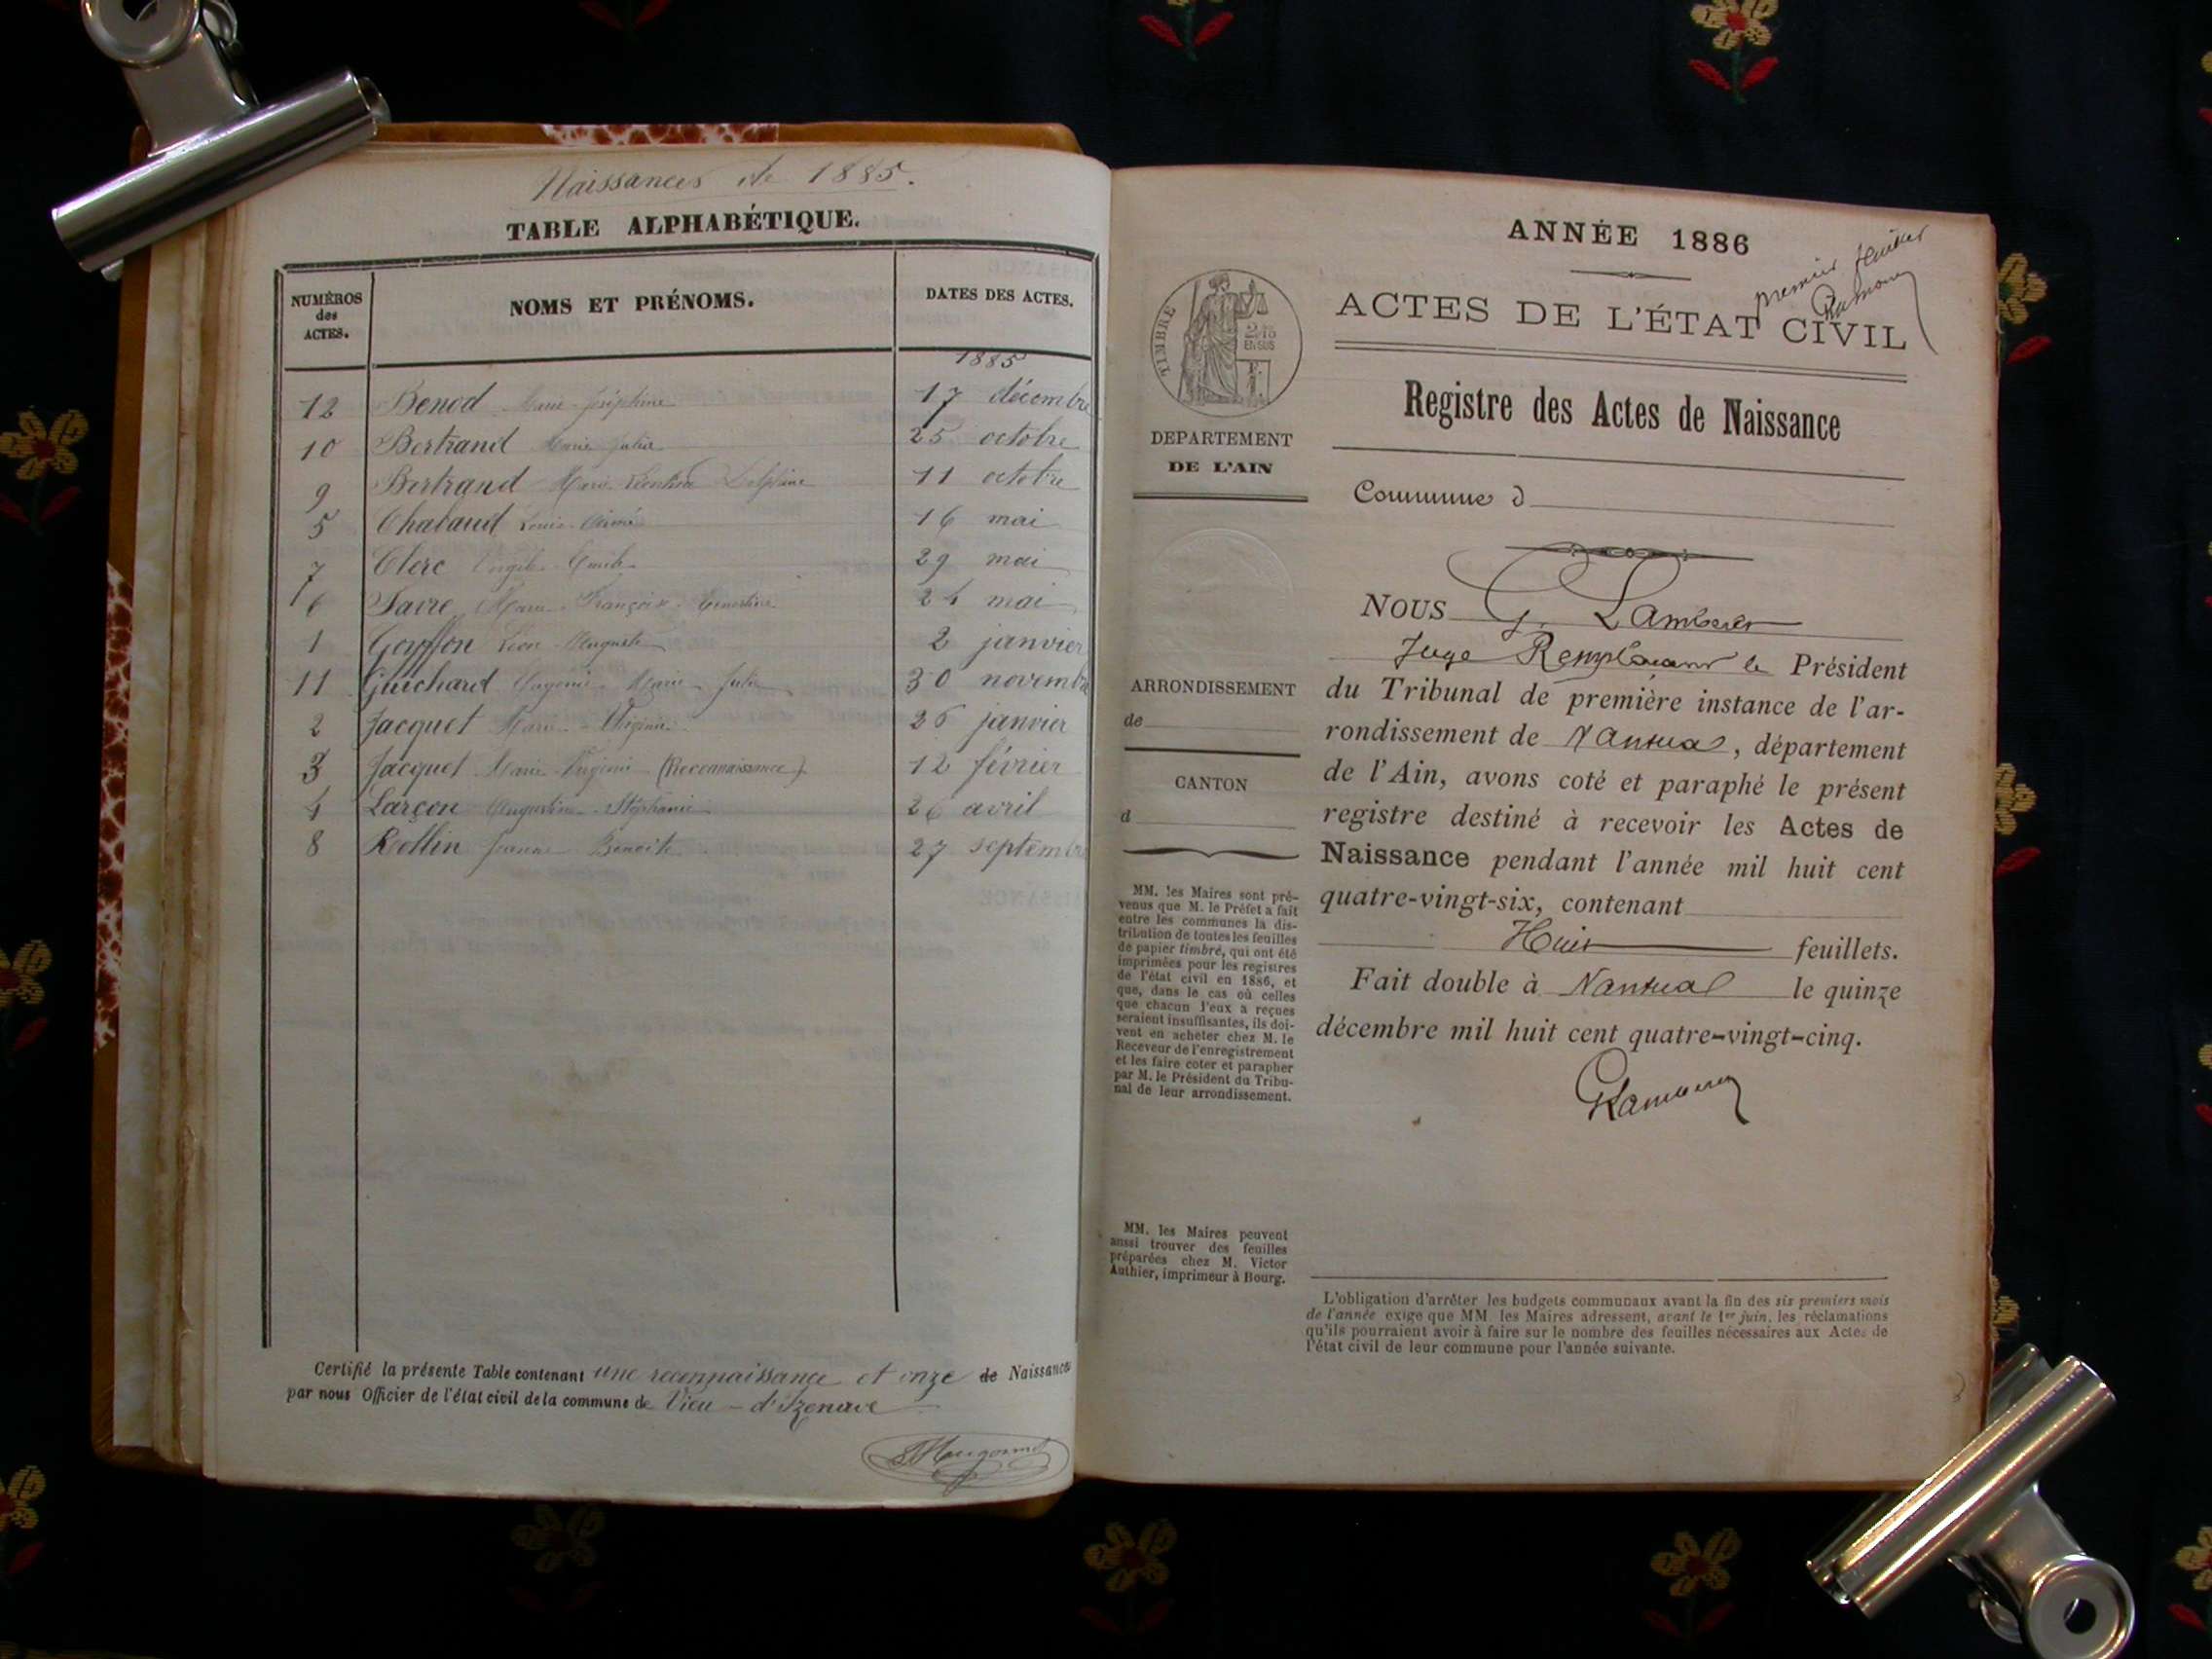 Naissances de 1885.
TABLE ALPHABÉTIQUE.
NUMÉROS des ACTES.
NOMS ET PRÉNOMS.
DATES DES ACTES.
1885
12 Benod Marie Joséphine 17 décembre
10 Bertrand Marie Julia 25 octobre
9 Bertrand Marie Delphine 11 octobre
5 Chabaud Louis Aimé 16 mai
7 Clerc 29 mai
6 Favre Marie Françoise Ernestine 24 mai
1 Goyffon Léon Auguste 2 janvier
11 Guichard Eugénie Marie Julie 30 novembre
2 Jacquet Marie 26 janvier
3 Jacquet Marie (Reconnaissance) 12 février
4 Larçon Augustine Stéphanie 26 avril
8 Rollin Jeanne Benoîte 27 septembre
Certifié la présente Table contenant une reconnaissance et onze de Naissance
par nous Officier de l'état civil de la commune de Vieu-d'Izenave
ANNÉE 1886
premier feuillet
ACTES DE L'ÉTAT CIVIL
Registre des Actes de Naissance
Commune d
NOUS G. Lambert
Juge Remplaçant le Président
du Tribunal de première instance de l'ar-
rondissement de Nantua, département
de l'Ain, avons coté et paraphé le présent
registre destiné à recevoir les Actes de
Naissance pendant l'année mil huit cent
quatre-vingt-six, contenant
Huit feuillets.
Fait double à Nantua le quinze
décembre mil huit cent quatre-vingt-cinq.
TIMBRE
2/10 EN SUS
DEPARTEMENT
DE L'AIN
ARRONDISSEMENT
de
CANTON
d
MM. les Maires sont pré-
venus que M. le Préfet a fait
entre les communes la dis-
tribution de toutes les feuilles
de papier timbré, qui ont été
imprimées pour les registres
de l'état civil en 1886, et
que, dans le cas où celles
que chacun d'eux a reçues
seraient insuffisantes, ils doi-
vent en acheter chez M. le
Receveur de l'enregistrement
et les faire coter et parapher
par M. le Président du Tribu-
nal de leur arrondissement.
MM. les Maires peuvent
aussi trouver des feuilles
préparées chez M. Victor
Authier, imprimeur à Bourg.
L'obligation d'arrêter les budgets communaux avant la fin des six premiers mois
de l'année exige que MM. les Maires adressent, avant le 1er juin, les réclamations
qu'ils pourraient avoir à faire sur le nombre des feuilles nécessaires aux Actes de
l'état civil de leur commune pour l'année suivante.